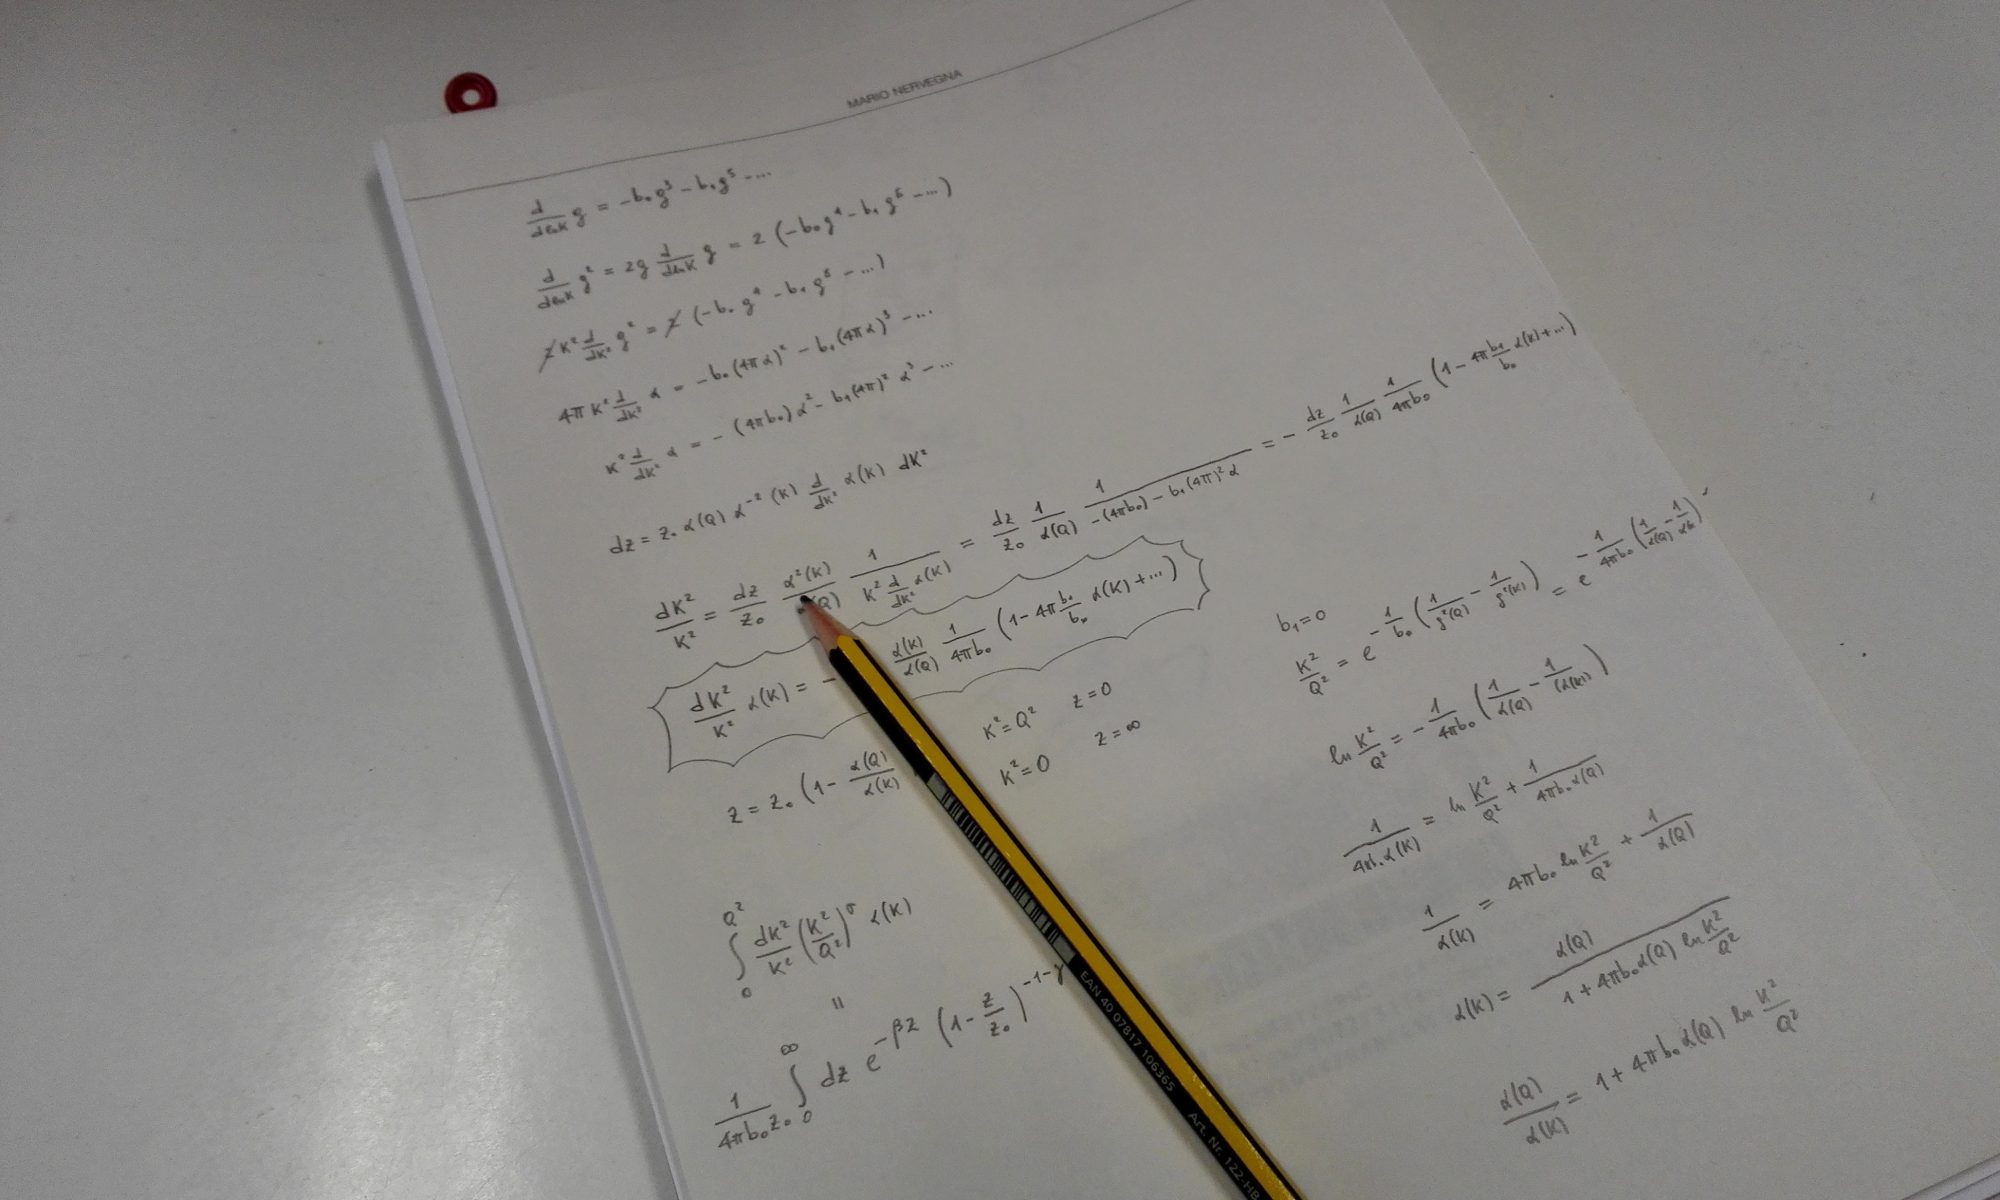 MARIO NERVEGNA
d/dlnK g = -b₀g³ - b₁g⁵ - ...
d/dlnK g² = 2g d/dlnK g = 2 (-b₀g⁴ - b₁g⁶ - ...)
2K² d/dK² g² = 2 (-b₀g⁴ - b₁g⁶ - ...)
4π K² d/dK² α = -b₀(4πα)² - b₁(4πα)³ - ...
K² d/dK² α = -(4πb₀)α² - b₁(4π)²α³ - ...
dz = z₀ α(Q) α⁻²(K) d/dK² α(K) dK²
dK²/K² = dz/z₀ α²(K)/α(Q) 1/(K² d/dK² α(K)) = dz/z₀ 1/α(Q) 1/(-(4πb₀) - b₁(4π)²α) = - dz/z₀ 1/α(Q) 1/4πb₀ (1 - 4π b₁/b₀ α(K) + ...)
dK²/K² α(K) = - α(K)/α(Q) 1/4πb₀ (1 - 4π b₁/b₀ α(K) + ...)
z = z₀ (1 - α(Q)/α(K)
K² = Q² z = 0
K² = 0 z = ∞
∫₀^Q² dK²/K² (K²/Q²)^σ α(K)
=
1/4πb₀z₀ ∫₀^∞ dz e^(-βz) (1 - z/z₀)^(-1-γ)
b₁ = 0
K²/Q² = e^(-1/b₀ (1/g²(Q) - 1/g²(K))) = e^(-1/4πb₀ (1/α(Q) - 1/αk))
ln K²/Q² = - 1/4πb₀ (1/α(Q) - 1/(α(K))
1/4πb₀α(K) = ln K²/Q² + 1/4πb₀α(Q)
1/α(K) = 4πb₀ ln K²/Q² + 1/α(Q)
α(K) = α(Q)/(1 + 4πb₀α(Q) ln K²/Q²)
α(Q)/α(K) = 1 + 4πb₀α(Q) ln K²/Q²
EAN 40 07817 106365 Art. Nr. 122-HB